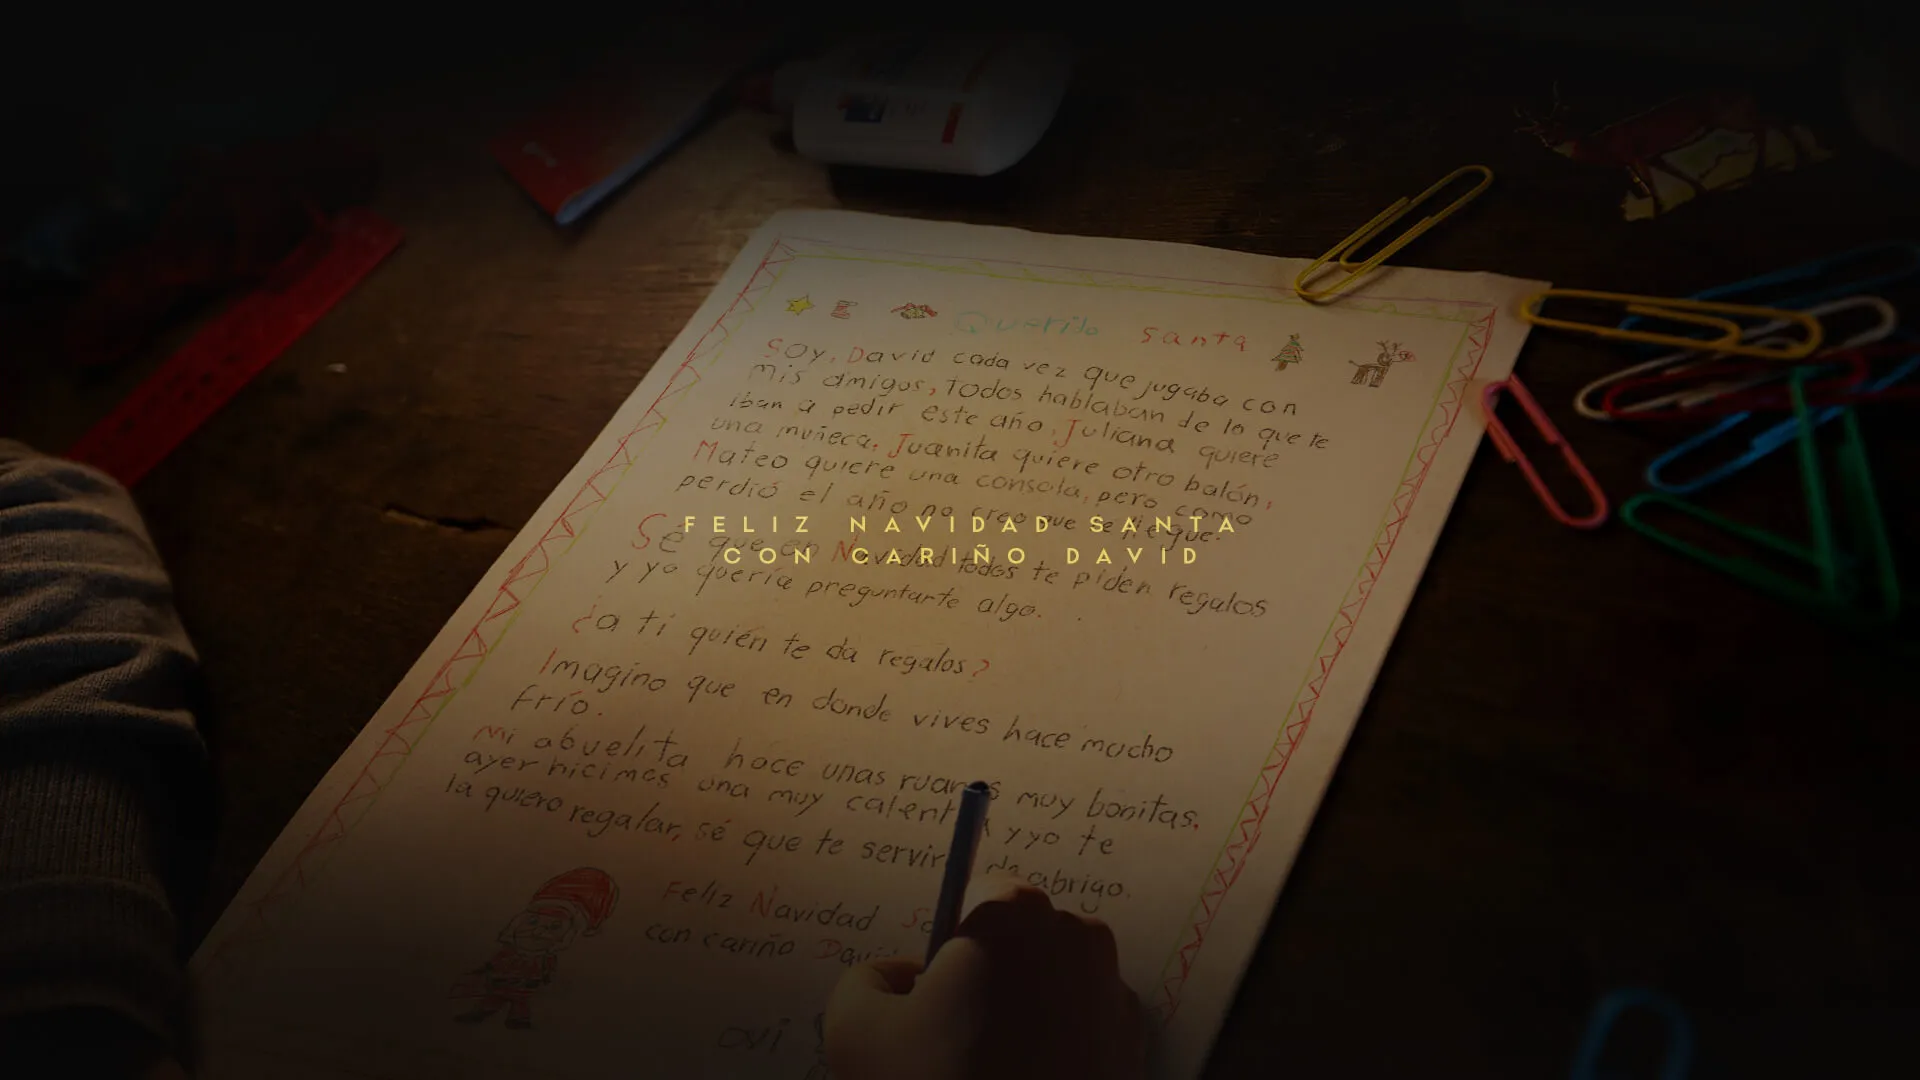 Querido Santa
Soy, David cada vez que jugaba con
mis amigos, todos hablaban de lo que te
iban a pedir este año, Juliana quiere
una muñeca, Juanita quiere otro balón,
Mateo quiere una consola, pero como
perdió el año no creo que te llegue.
FELIZ NAVIDAD SANTA
CON CARIÑO, DAVID
Sé que en Navidad todos te piden regalos
y yo quería preguntarte algo.
¿a ti quién te da regalos?
Imagino que en donde vives hace mucho
frío.
Mi abuelita hace unas ruanas muy bonitas,
ayer hicimos una muy calentita y yo te
la quiero regalar, sé que te servirá de abrigo.
Feliz Navidad Sa
con cariño David